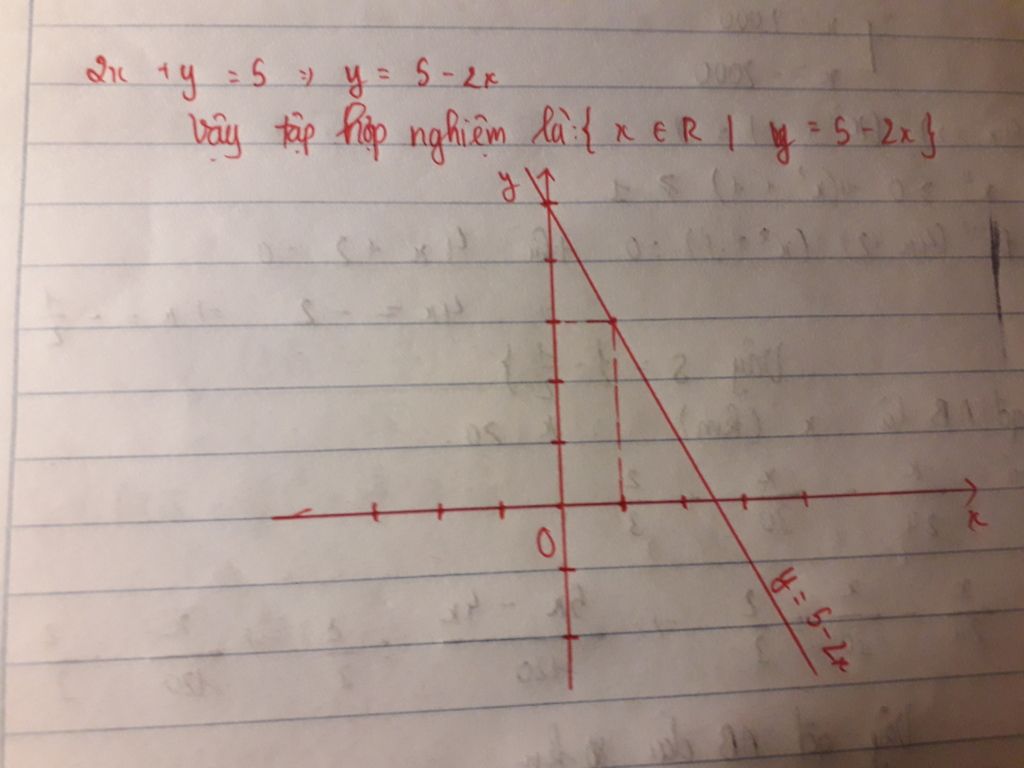 2x + y = 5 => y = 5 - 2x
Vậy tập hợp nghiệm là: { x ∈ R | y = 5 - 2x }
y
O
x
y = 5 - 2x